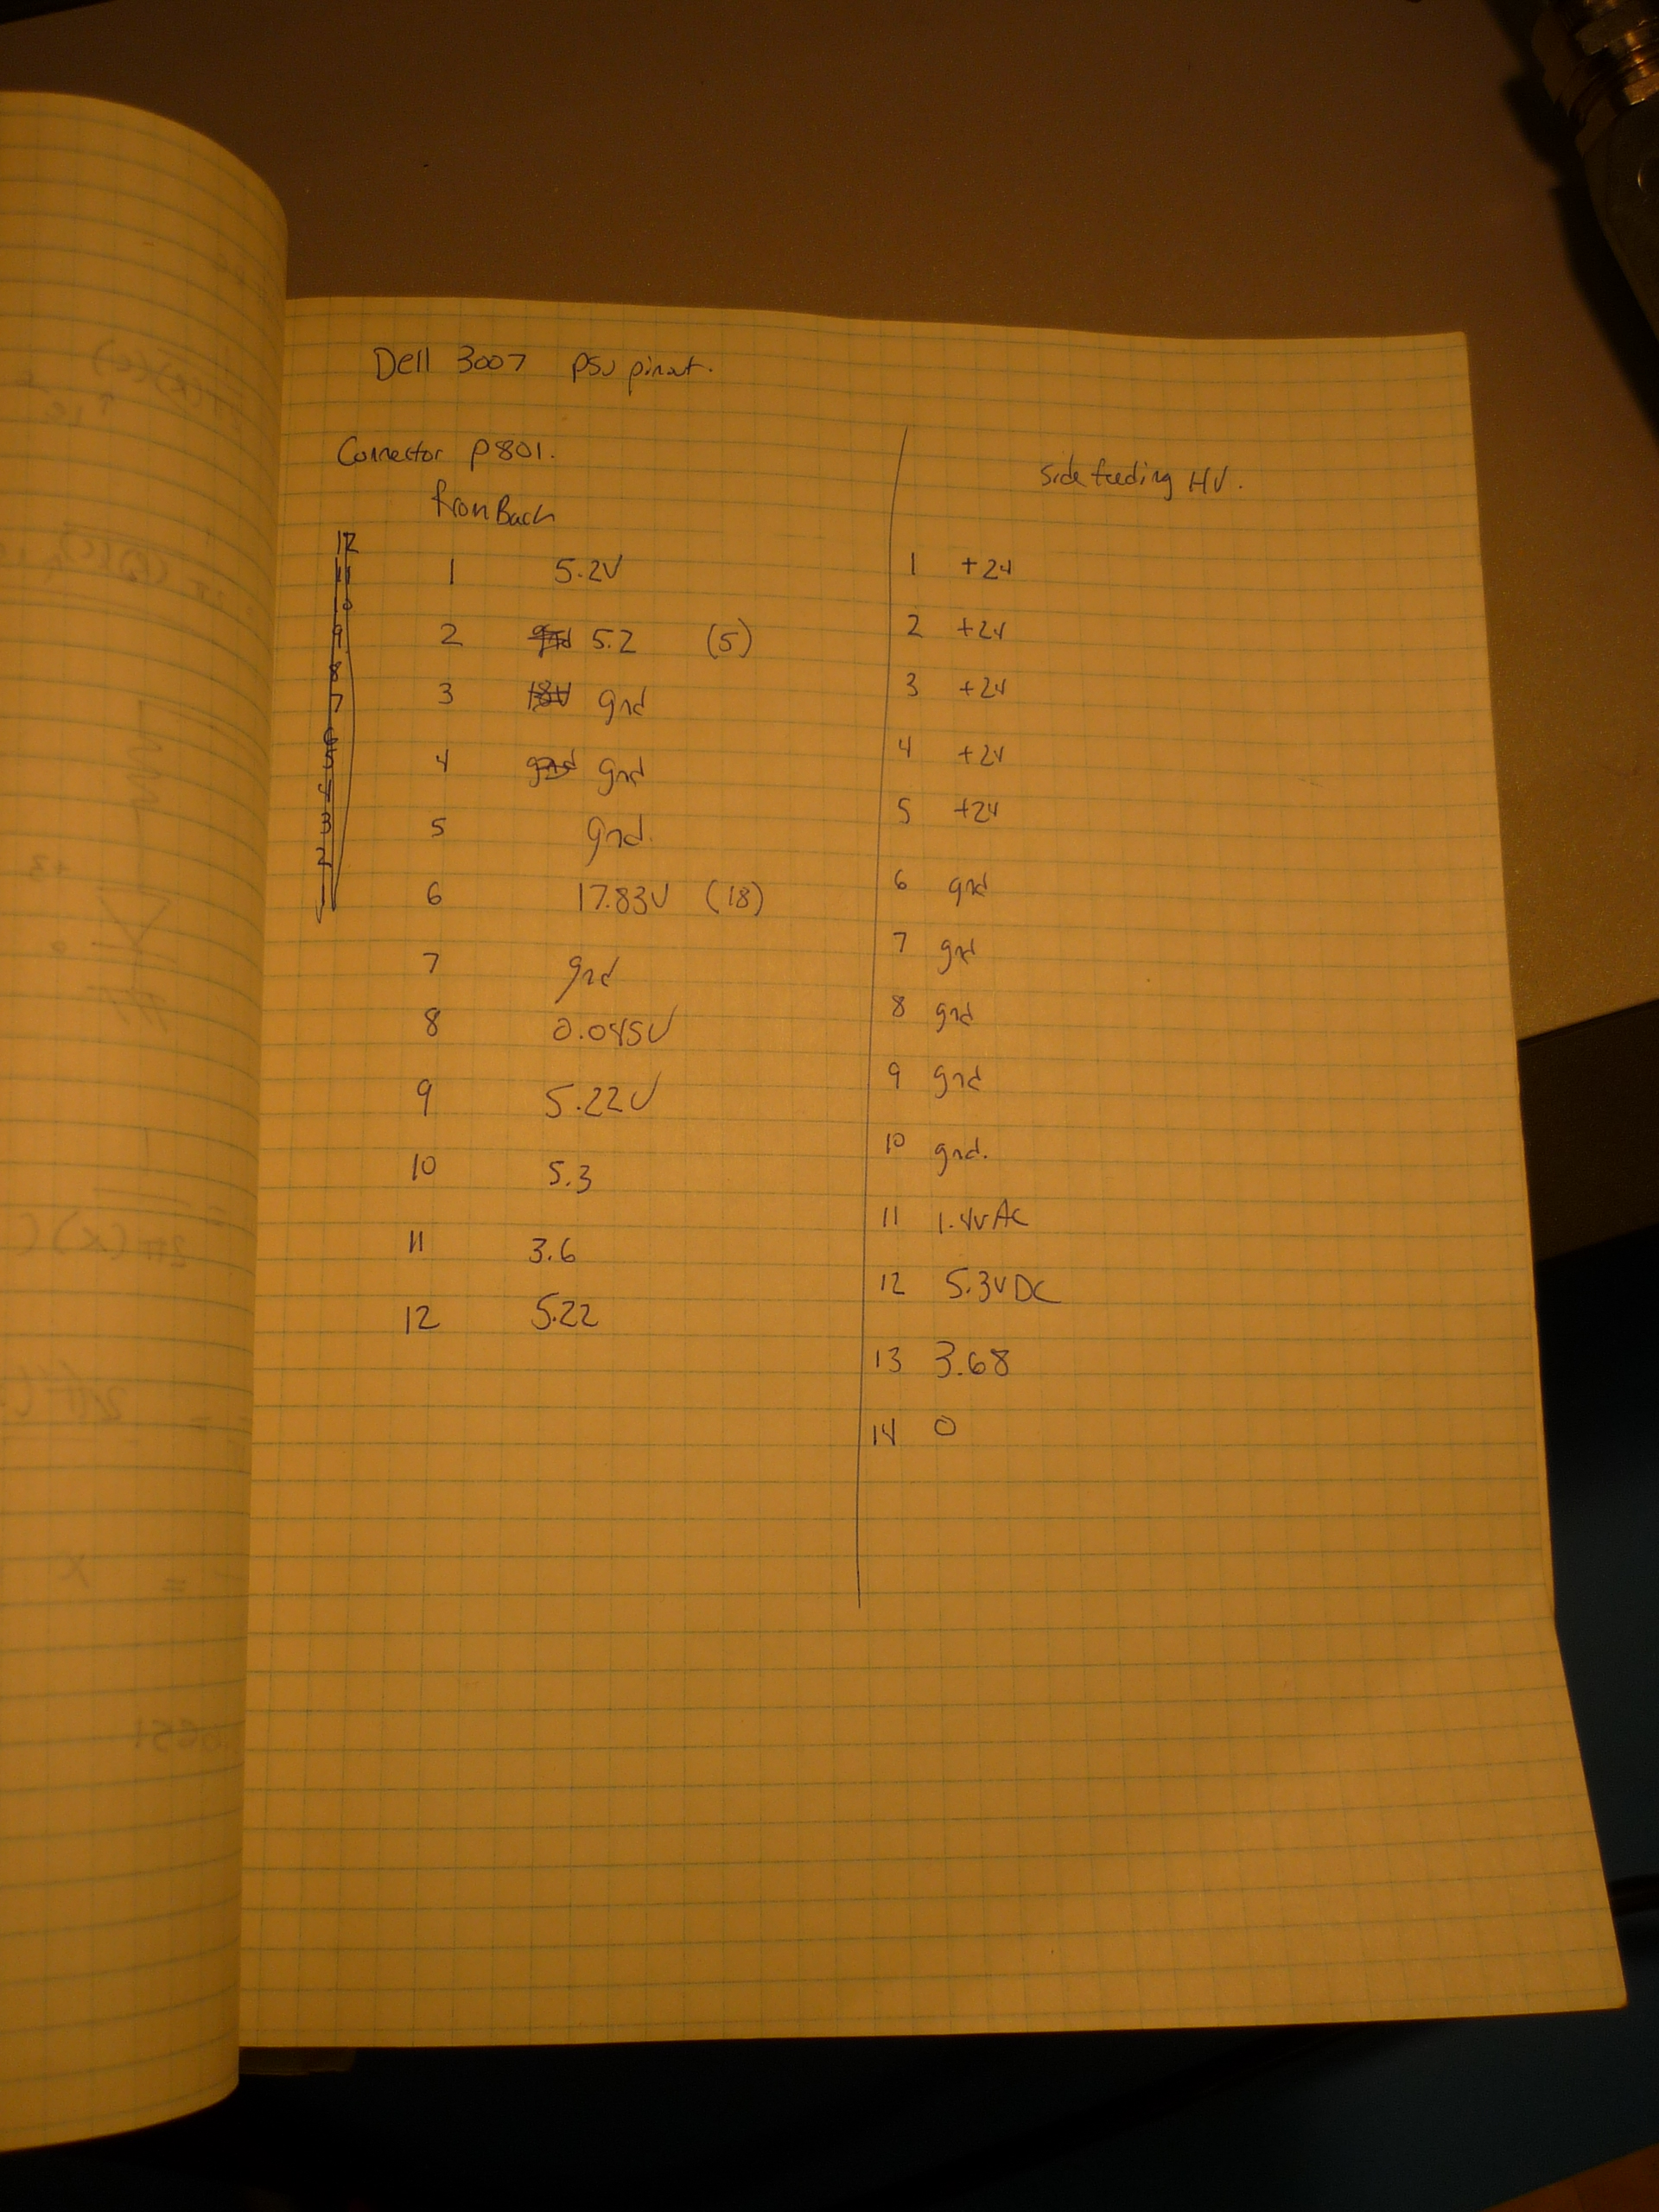 Dell 3007 psu pinout.
Connector P801.
from Back
1 5.2V
2 5.2 (5)
3 gnd
4 gnd
5 gnd.
6 17.83V (18)
7 gnd
8 0.045V
9 5.22V
10 5.3
11 3.6
12 5.22
12
11
10
9
8
7
6
5
4
3
2
1
side feeding HV.
1 +24
2 +24
3 +24
4 +24
5 +24
6 gnd
7 gnd
8 gnd
9 gnd
10 gnd.
11 1.4V AC
12 5.3V DC
13 3.68
14 0